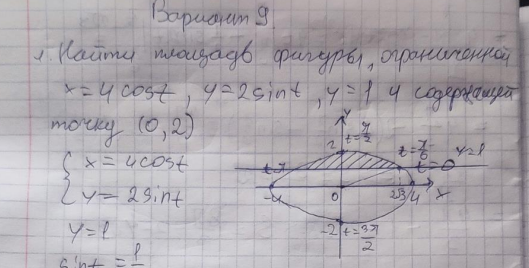 Вариант 9
1. Найти площадь фигуры, ограниченной
x=4cost, y=2sint, y=1 и содержащей
точку (0,2)
{ x=4cost
y=2sint
y=1
sint=1/
y
2
t=π/2
t=π/6
y=1
t=π
t=0
-4
0
2√3
4
x
-2
t=3π/2